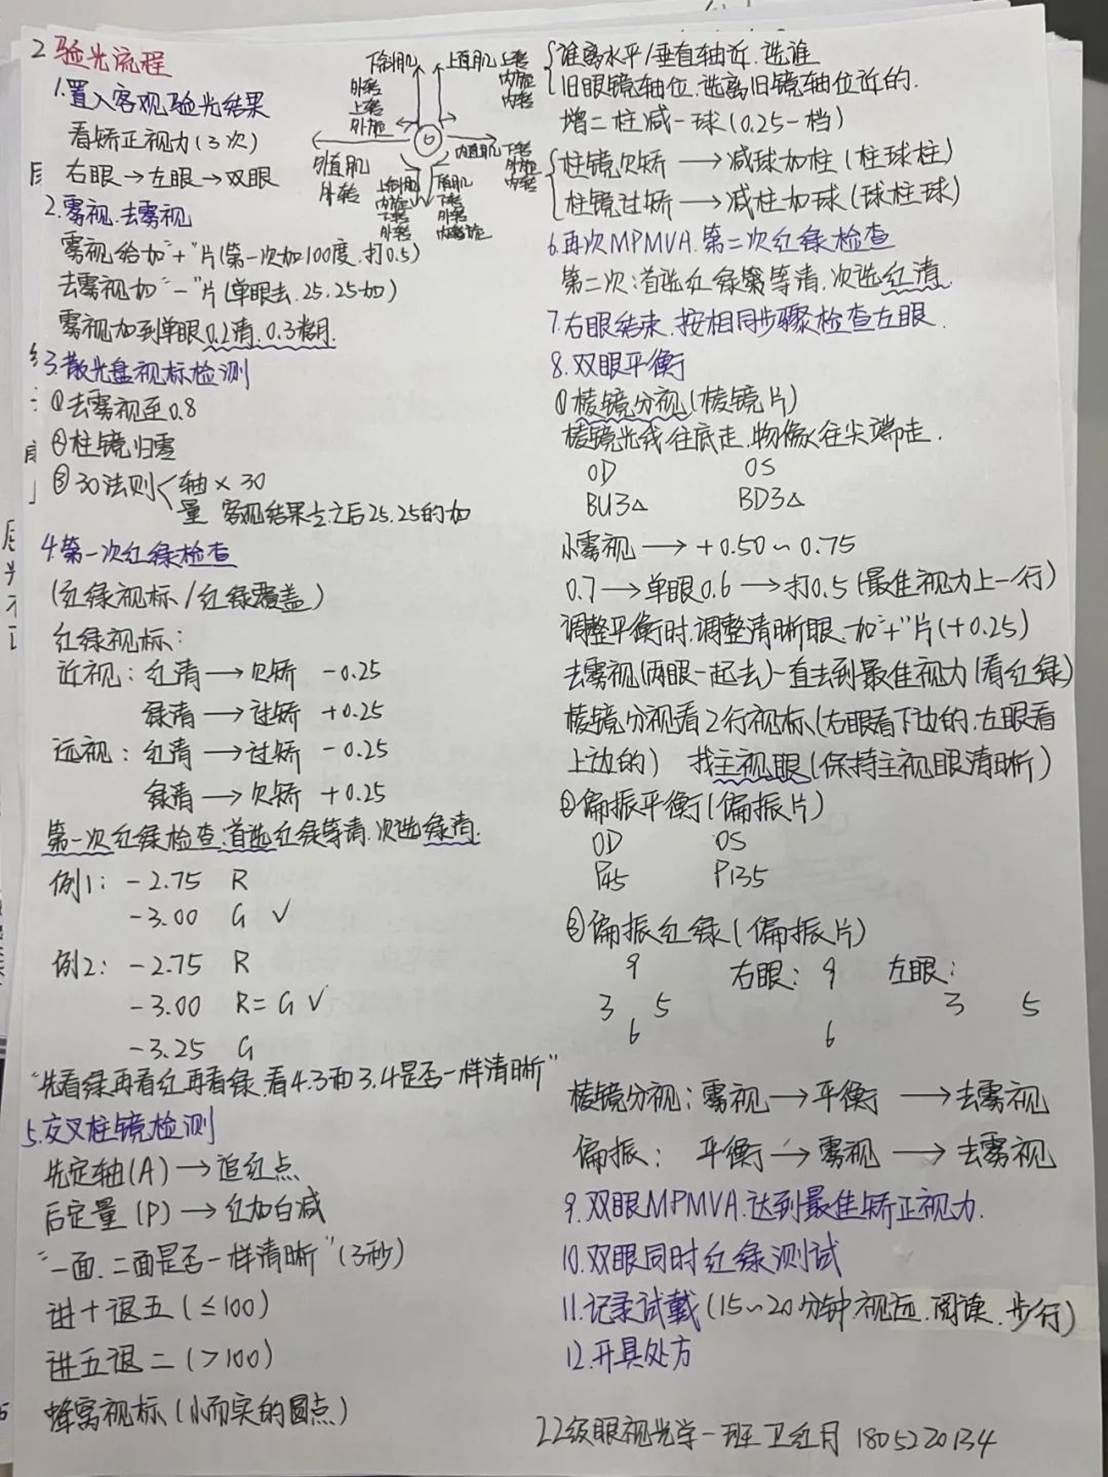 2 验光流程
1.置入客观验光结果
看矫正视力(3次)
右眼→左眼→双眼
2.雾视.去雾视
雾视给加"+"片(第一次加100度.打0.5)
去雾视加"-"片(单眼去.25.25加)
雾视加到单眼0.2清.0.3模糊
3.散光盘视标检测
①去雾视至0.8
②柱镜归零
③30法则<轴×30
量 客观结果去之后25.25的加
4.第一次红绿检查
(红绿视标/红绿覆盖)
红绿视标:
近视:红清→欠矫 -0.25
绿清→过矫 +0.25
远视:红清→过矫 -0.25
绿清→欠矫 +0.25
第一次红绿检查:首选红绿等清.次选绿清.
例1: -2.75 R
-3.00 G ✓
例2: -2.75 R
-3.00 R=G ✓
-3.25 G
"先看绿再看红再看绿.看4.3和3.4是否一样清晰"
5.交叉柱镜检测
先定轴(A)→追红点
后定量(P)→红加白减
"一面.二面是否一样清晰"(3秒)
进十退五(≤100)
进五退二(>100)
蜂窝视标(小而实的圆点)
下斜肌
外转
上转
外旋
上直肌 上转
内旋
内转
外直肌
外转
内直肌
上斜肌
内旋
下转
外转
下直肌
下转
外转
下转
外旋
内转
谁离水平/垂直轴近.选谁
旧眼镜轴位.选离旧镜轴位近的.
增二柱减一球(0.25一档)
柱镜欠矫→减球加柱(柱球柱)
柱镜过矫→减柱加球(球柱球)
6.再次MPMVA.第二次红绿检查
第二次:首选红绿等清.次选红清.
7.右眼结束.按相同步骤检查左眼.
8.双眼平衡
①棱镜分视(棱镜片)
棱镜光线往底走.物像往尖端走.
OD OS
BU3△ BD3△
小雾视→+0.50~0.75
0.7→单眼0.6→打0.5(最佳视力上一行)
调整平衡时.调整清晰眼.加"+"片(+0.25)
去雾视(两眼一起去)一直去到最佳视力(看红绿)
棱镜分视看2行视标(右眼看下边的.左眼看
上边的) 找主视眼(保持主视眼清晰)
②偏振平衡(偏振片)
OD OS
P45 P135
③偏振红绿(偏振片)
9 右眼: 9 左眼:
3 5 3 5
6 6
棱镜分视:雾视→平衡→去雾视
偏振: 平衡→雾视→去雾视
9.双眼MPMVA.达到最佳矫正视力.
10.双眼同时红绿测试
11.记录试戴(15~20分钟.视远.阅读.步行)
12.开具处方
22级眼视光学一班 卫红月 1805220134